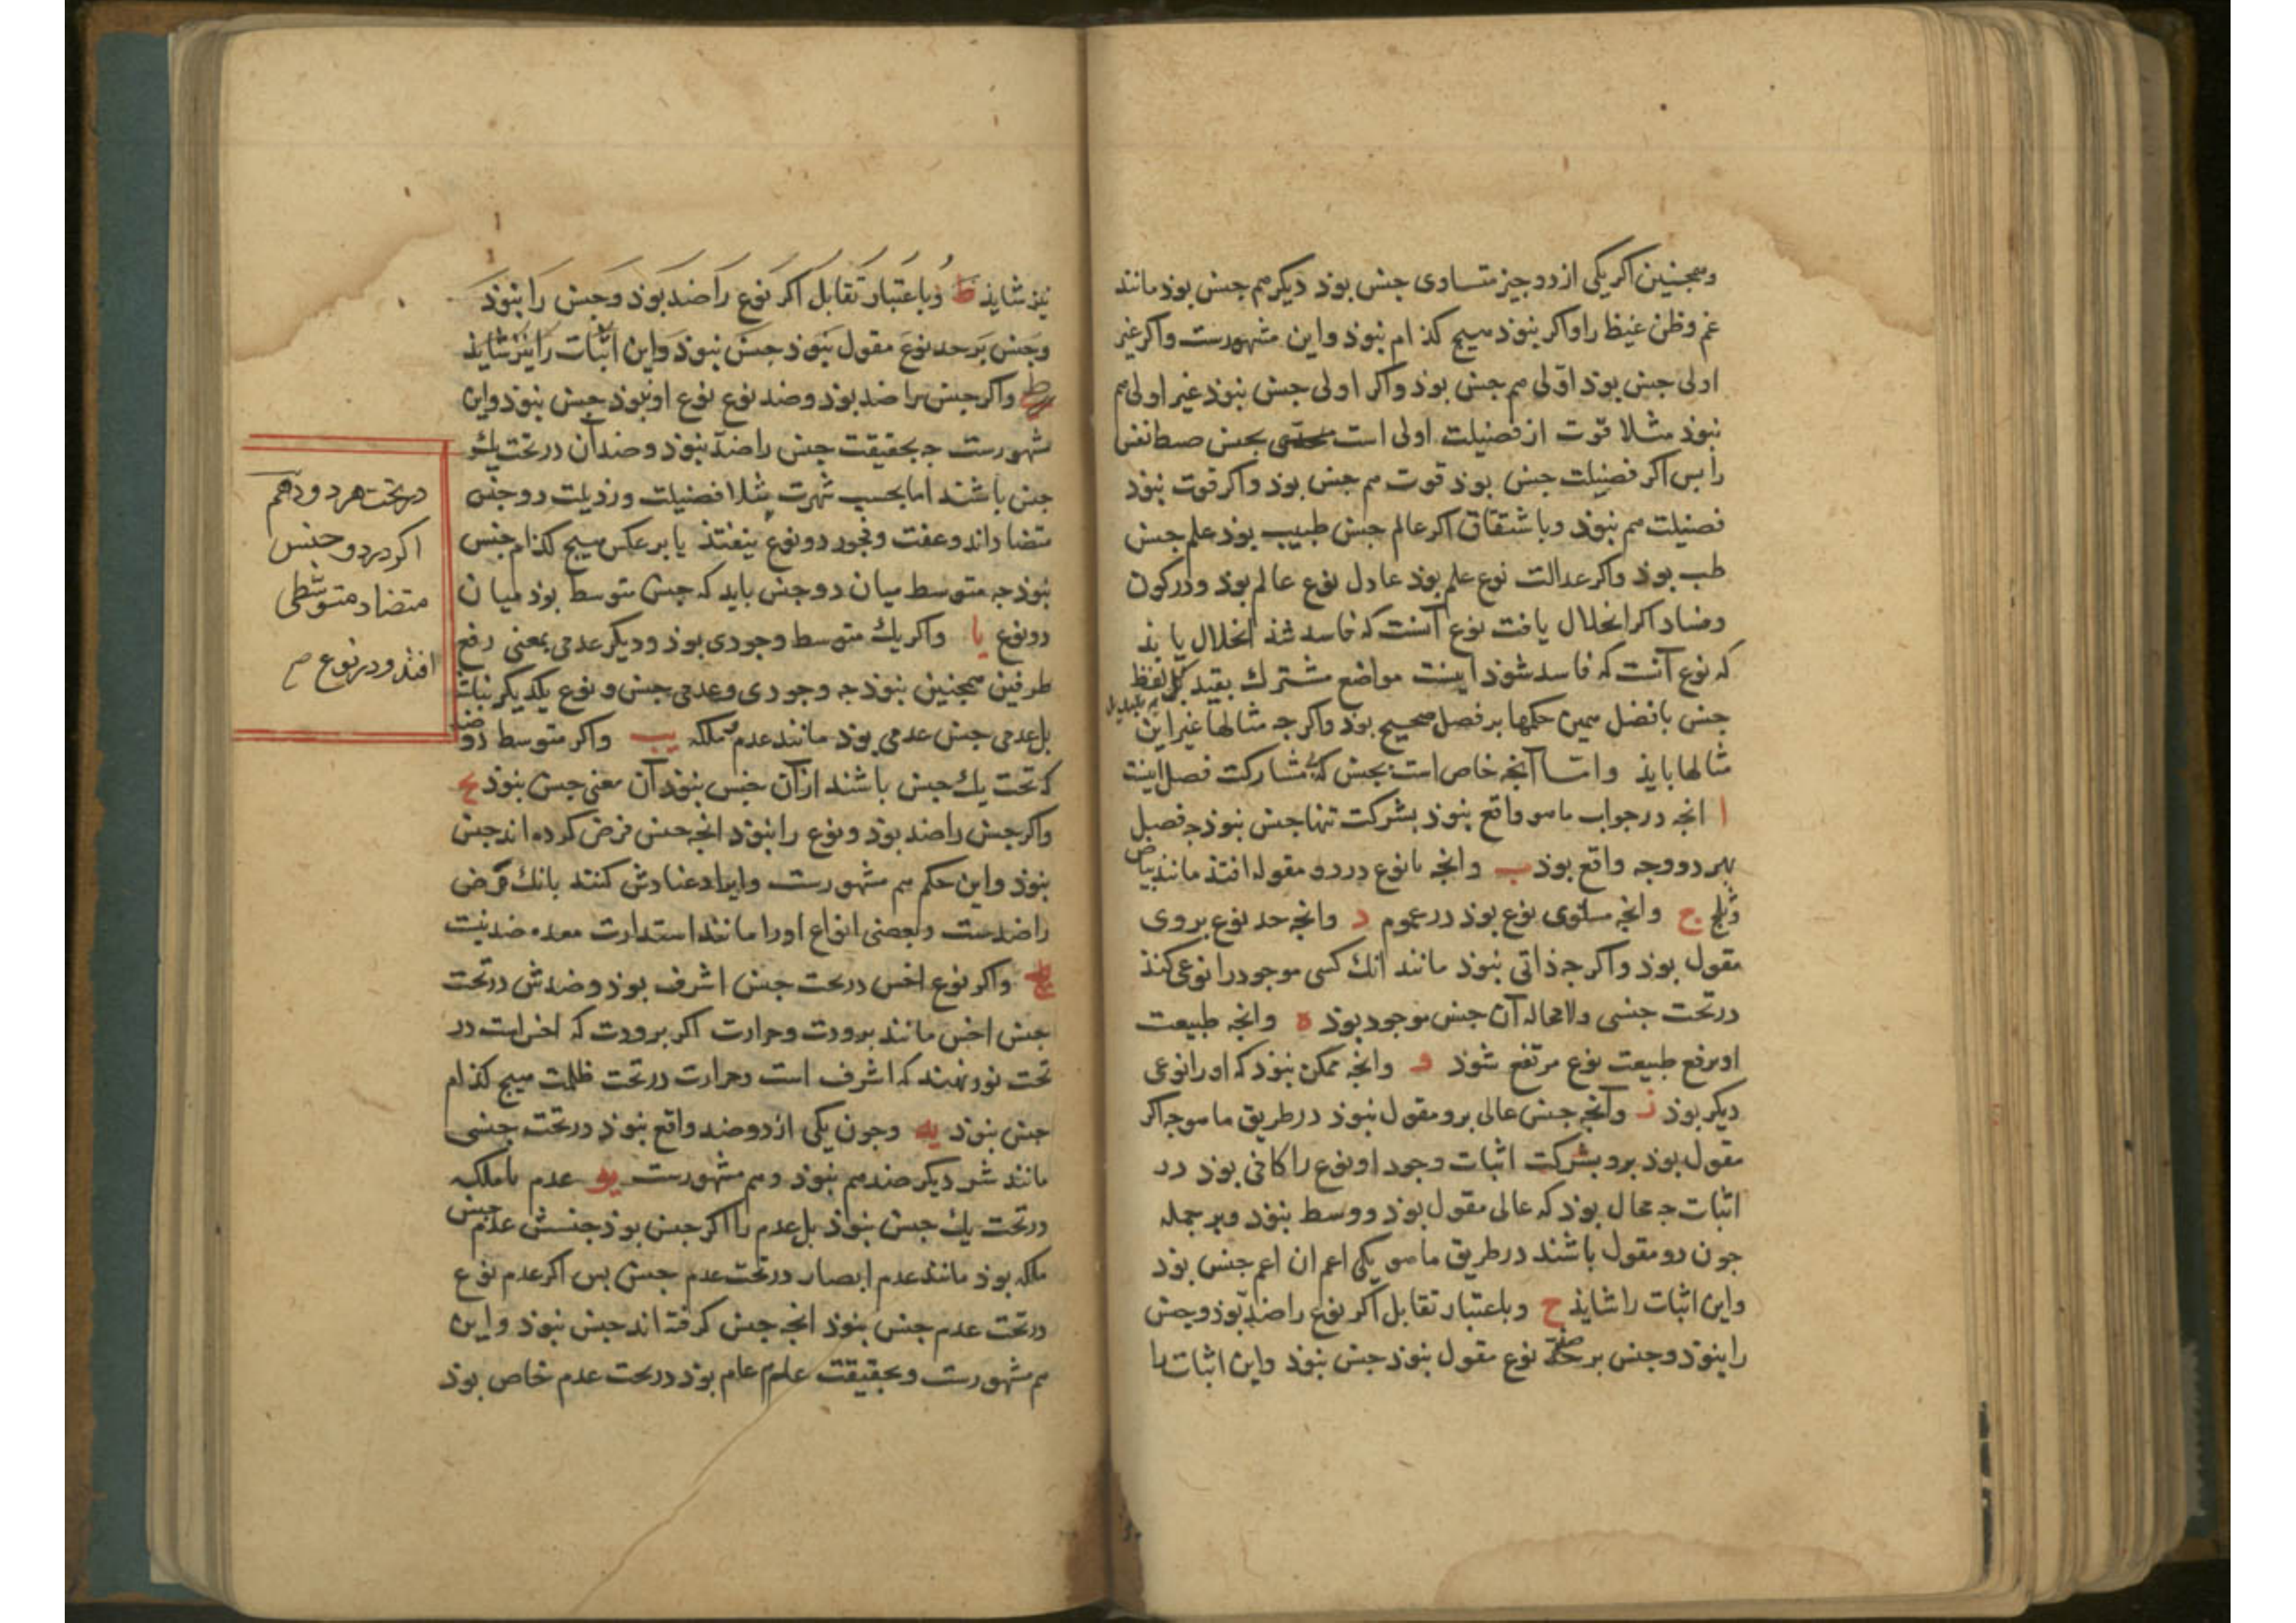 وهمچنین اکر یکی از دو چیز متساوی جنس بوذ دیکر هم جنس بوذ مانند
غم وظن غیظ را واکر نبوذ هیچ کذام نبوذ واین مشهورست واکر غیر
اولی جنس بوذ اولی هم جنس بوذ واکر اولی جنس نبوذ غیر اولی هم
نبوذ مثلا قوت از فضیلت اولی است بجنس ضبط نفس
را بس اکر فضیلت جنس بوذ قوت هم جنس بوذ واکر قوت نبوذ
فضیلت هم نبوذ وباشتقاق اکر عالم جنس طبیب بوذ علم جنس
طب بوذ واکر عدالت نوع علم بوذ عادل نوع عالم بوذ ودر کون
وفساد اکر انحلال یافت نوع آنست که فاسد شذ انحلال یابذ
که نوع آنست که فاسد شوذ اینست مواضع مشترک بقید کل لفظ
جنس بافضل همین حکمها بر فصل صحیح بوذ واکرجه مثالها غیر این
مثالها بایذ واما آنجه خاص است بجنس که بی مشارکت فصل اینست
ا انجه در جواب ماهو واقع نبوذ بشرکت تنها جنس نبوذ جه فصل
بهر دو وجه واقع بوذ ب وانجه با نوع در دو مقوله افتذ مانند بیاض
وثلج ج وانجه مساوی نوع بوذ در عموم د وانجه حد نوع بروی
مقول بوذ واکرجه ذاتی نبوذ مانند انک کسی موجود را نوعی کنذ
در تحت جنسی ولامحاله آن جنس موجود بوذ ه وانجه طبیعت
او برفع طبیعت نوع مرتفع شوذ و وانجه ممکن نبوذ که او را نوعی
دیکر بوذ ز وآنجه جنس عالی برو مقول نبوذ در طریق ماهو جه اکر
مقول بوذ برو بشرکت اثبات وجود او نوع را کافی بوذ در
اثبات جه محال بوذ که عالی مقول بوذ ووسط نبوذ وبر جمله
جون دو مقول باشند در طریق ماهو یکی اعم ان اعم جنس بوذ
واین اثبات را شایذ ح وباعتبار تقابل اکر نوع را ضد بوذ وجنس
را نبوذ وجنس بر ضد نوع مقول نبوذ جنس نبوذ واین اثبات را
نیز شایذ ط وباعتبار تقابل اکر نوع را ضد بوذ وجنس را نبوذ
وجنس بر حد نوع مقول نبوذ جنس نبوذ واین اثبات را نیز شایذ
واکر جنس را ضد بوذ وضد نوع نوع او نبوذ جنس نبوذ واین
مشهورست جه بحقیقت جنس را ضد نبوذ وضدان در تحت یک
جنس باشند اما بحسب شهرت مثلا فضیلت ورذیلت دو جنس
متضاد اند وعفت وفجور دو نوع بیفتذ یا بر عکس هیچ کذام جنس
نبوذ جه متوسط میان دو جنس باید که جنس متوسط بوذ میان
دو نوع یا واکر یک متوسط وجودی بوذ ودیکر عدمی بمعنی رفع
طرفین همچنین نبوذ جه وجودی وعدمی جنس ونوع یکدیکر نباشند
بل عدمی جنس عدمی بوذ مانند عدم وملکه یب واکر متوسط دو ضد
که تحت یک جنس باشند از آن جنس نبوذ آن معنی جنس نبوذ یج
واکر جنس را ضد بوذ ونوع را نبوذ انجه جنس فرض کرده اند جنس
نبوذ واین حکم هم مشهورست وایراد عنادش کنند بانک مرض
را ضد هست وبعضی انواع او را مانند استدارت معده ضد نیست
واکر نوع اخس در تحت جنس اشرف بوذ وضدش در تحت
جنس اخس مانند برودت وحرارت اکر برودت که اخس است در
تحت نور نهند که اشرف است وحرارت در تحت ظلمت هیچ کذام
جنس نبوذ یه وجون یکی از دو ضد واقع نبوذ در تحت جنسی
مانند شر دیکر ضد هم نبوذ وهم مشهورست یو عدم با ملکه
در تحت یک جنس نبوذ بل عدم را اکر جنس بوذ جنسش عدم جنس
ملکه بوذ مانند عدم ابصار در تحت عدم جنس بس اکر عدم نوع
در تحت عدم جنس نبوذ انجه جنس کرفته اند جنس نبوذ واین
هم مشهورست وبحقیقت عدم عام بوذ در تحت عدم خاص بوذ
در تحت هر دو دهم
اکر در دو جنس
متضاد متوسطی
افتد ودر نوع